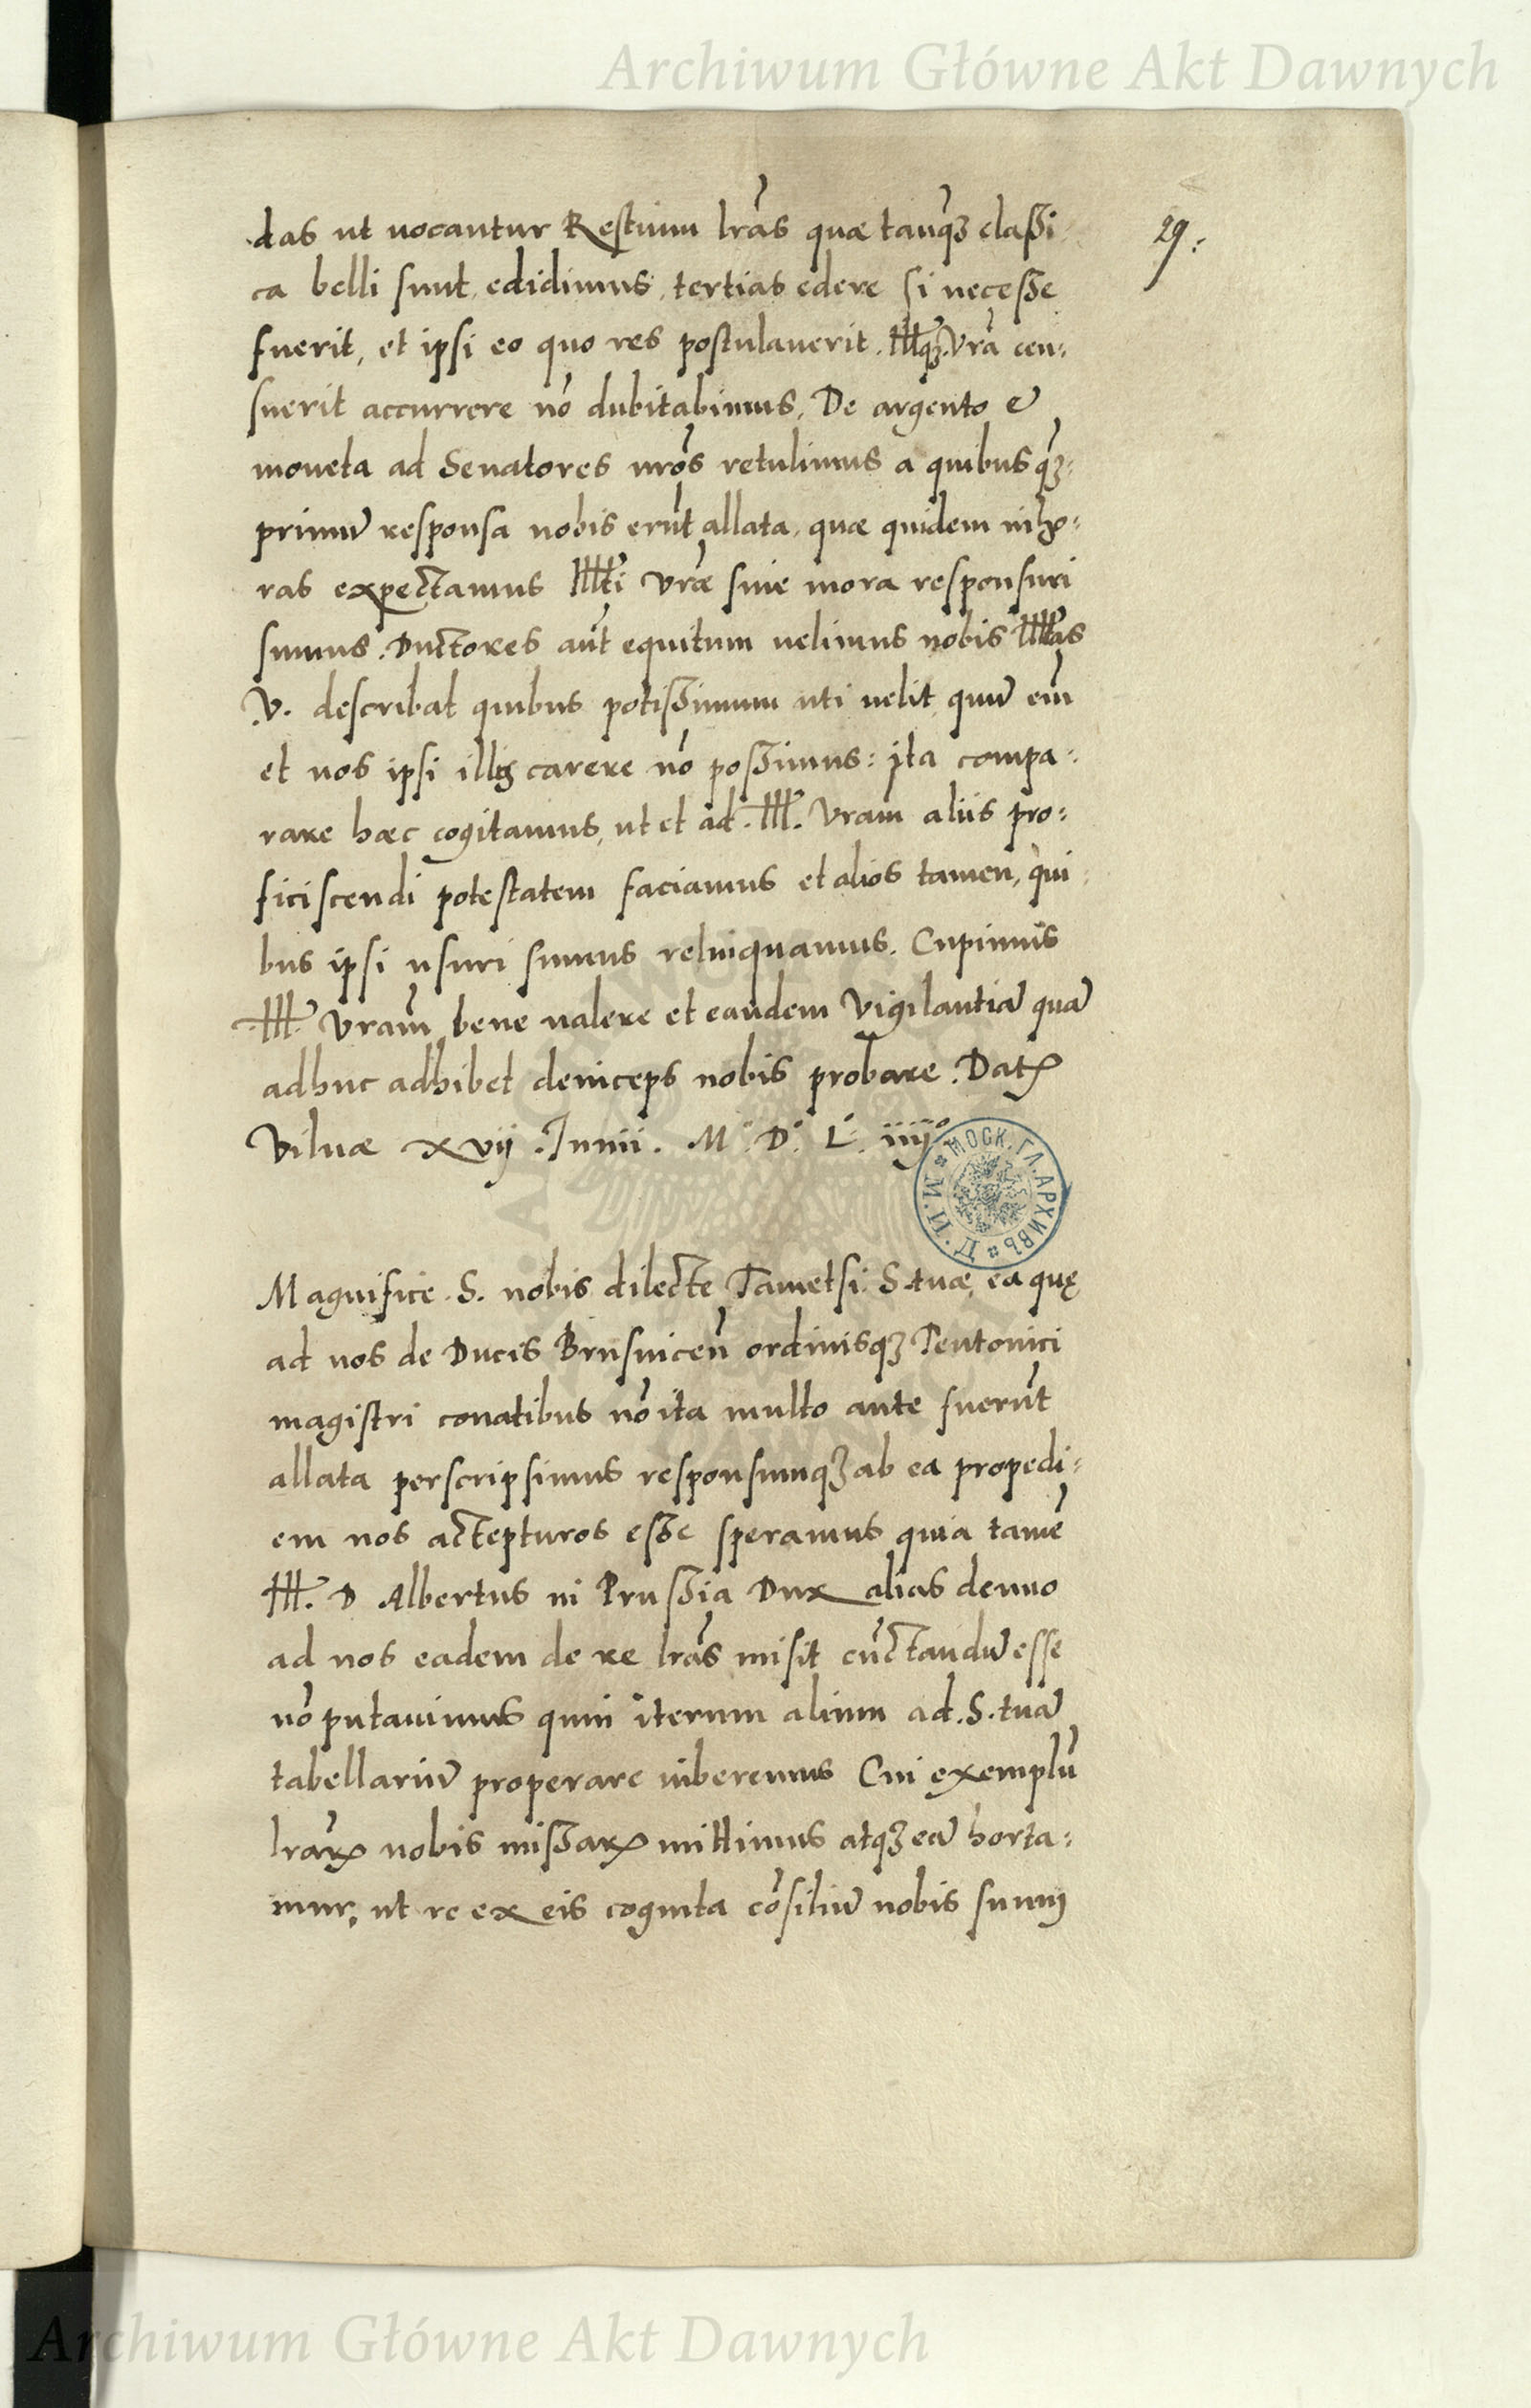 Archiwum Główne Akt Dawnych
29:
das ut uocantur Restium lr̃as quae tanq̃ȝ classi
ca belli sunt, edidimus, tertias edere si necesse
fuerit, et ipsi eo quo res postulauerit. Illqȝ. Vr̃a cen:
suerit accurrere nõ dubitabimus. De argento et
moneta ad Senatores nr̃os retulimus a quibus q̃ȝ:
primũ responsa nobis erũt allata, quae quidem in ho:
ras expectamus Illti Vr̃ae sine mora responsuri
sumus. Ductores aũt equitum uelimus nobis Illtas
V. describat quibus potissimum uti uelit, quũ em̃
et nos ipsi illis carere nõ possimus: ita compa:
rare haec cogitamus, ut et ad. Ill. Vram aliis pro:
ficiscendi potestatem faciamus et alios tamen, qui:
bus ipsi usuri sumus relinquamus. Cupimus
Ill. Vram̃ bene ualere et eandem Vigilantiã quã
adhuc adhibet deinceps nobis probare. Datꝝ
Vilnae xvij. Junii. M.° D.° L.° iiij°
МОСК. ГЛ. АРХИВЪ М. И. Д.
Magnifice. S. nobis dilecte Tametsi. S. tuae, ea quę
ad nos de Ducis Brusuiceñ ordinisqȝ Teutonici
magistri conatibus nõ ita multo ante fuerũt
allata perscripsimus responsumqȝ ab ea propedi:
em nos accepturos esse speramus quia tamẽ
Ill. D Albertus in Prussia Dux alias denuo
ad nos eadem de re lr̃as misit cũctandũ esse
nõ putauimus quin iterum alium ad. S. tuã
tabellariũ properare iuberemus Cui exemplũ
lr̃arꝝ nobis missarꝝ mittimus atqȝ eã horta:
mur, ut re ex eis cognita cõsiliũ nobis suum
Archiwum Główne Akt Dawnych